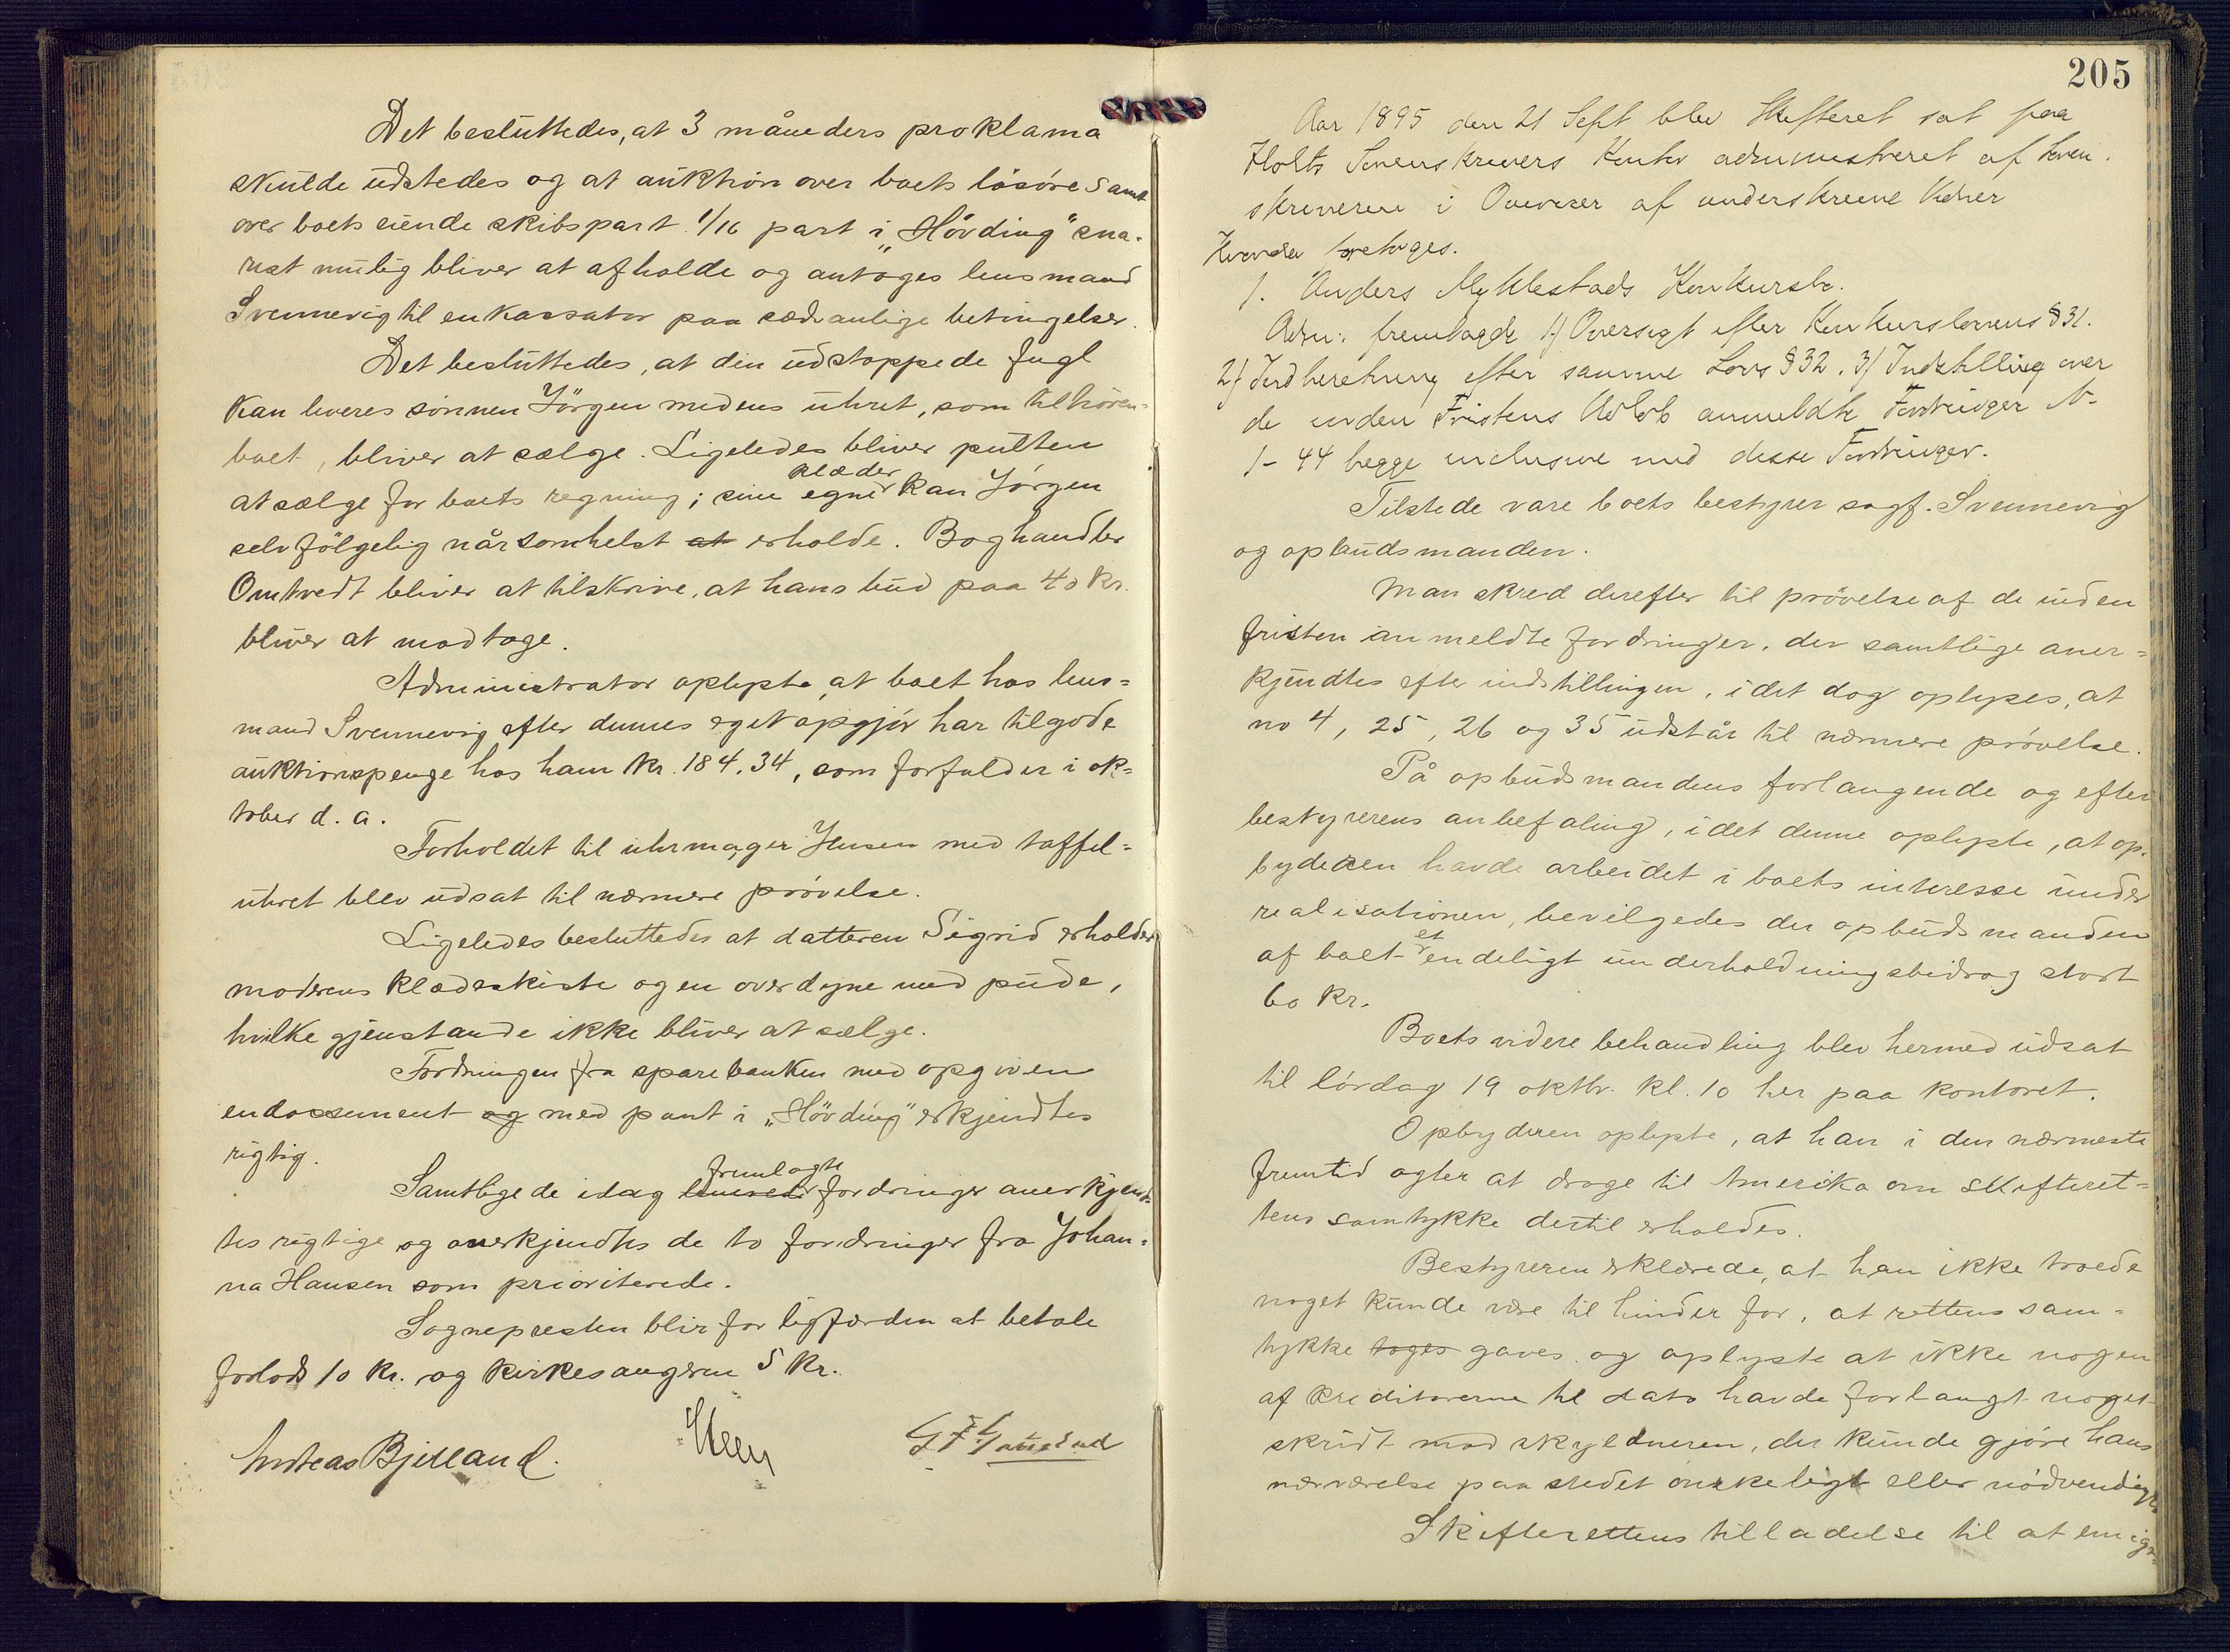 Det besluttedes, at 3 måneders proklama
skulde udstedes og at auktion over boets løsøre samt
over boets eiende skibspart 1/16 part i „Hövding" sna-
rest mulig bliver at afholde og antages lensmand
Svennevig til enkassator paa sædvanlige betingelser.
Det besluttedes, at den udstoppede fugl
kan leveres sönnen Jörgen medens uhret, som tilhören-
boet, bliver at sælge. Ligeledes bliver pulten
klæder
at sælge for boets regning; sine egne kan Jörgen
selvfölgelig nårsomhelst at erholde. Boghandler
Omtvedt bliver at tilskrive, at hans bud paa 40 kr.
bliver at modtage.
Administrator oplyste, at boet hos lens=
mand Svennevig efter dennes eget opgjör har tilgode
auktionspenge hos ham kr. 184.34, som forfalder i ok=
tober d. a.
Forholdet til uhrmager Jensen med taffel=
uhret blev udsat til nærmere prövelse.
Ligeledes besluttedes at datteren Sigrid erholder
moderens klædeskiste og en overdyne med pude,
hvilke gjenstande ikke bliver at sælge.
Fordringen fra sparebanken med opgiven
endossement og med pant i „Hövding" erkjendtes
rigtig.
fremlagte
Samtlige de idag fordringer anerkjend-
tes rigtige og anerkjendtes de to fordringer fra Johan=
na Hansen som prioriterede.
Sognepresten blir for ligfærden at betale
forlods 10 kr. og kirkesangeren 5 kr.
Andreas Bjelland.
205
Aar 1895 den 21 Sept blev Skifteret sat paa
Holts Sorenskrivers Kontor administreret af Soren-
skriveren i Overvær af underskrevne Vidner
Hvorda foretoges.
1. Anders Myklestads Konkursbo.
Adm: fremlagde 1) Oversigt efter Konkurslovens § 31.
2) Indberetning efter samme Lovs § 32. 3) Indstilling over
de inden Fristens Udløb anmeldte Fordringer N-
1-44 begge inclusive med disse Fordringer.
Tilstede vare boets bestyrer sagf. Svennevig
og opbudsmanden.
Man skred derefter til prövelse af de inden
fristen anmeldte fordringer, der samtlige aner=
kjendtes efter indstillingen, idet dog oplyses, at
no 4, 25, 26 og 35 udstår til nærmere prövelse.
På opbudsmandens forlangende og efter
bestyrerens anbefaling, idet denne oplyste, at op-
byderen havde arbeidet i boets interesse under
realisationen, bevilgedes der opbudsmanden
et
af boet endeligt underholdningsbidrag stort
60 kr.
Boets videre behandling blev hermed udsat
til lördag 19 oktbr. kl. 10 her paa kontoret.
Opbyderen oplyste, at han i den nærmeste
fremtid agter at drage til Amerika om skifteret=
tens samtykke dertil erholdes.
Bestyreren erklærede, at han ikke troede
noget kunde være til hinder for, at rettens sam=
tykke toges gaves og oplyste at ikke nogen
af kreditorerne til dato havde forlangt noget
skridt mod skyldneren, der kunde gjöre hans
nærværelse paa stedet önskeligt eller nödvendigt.
Skifterettens tilladelse til at emigr=